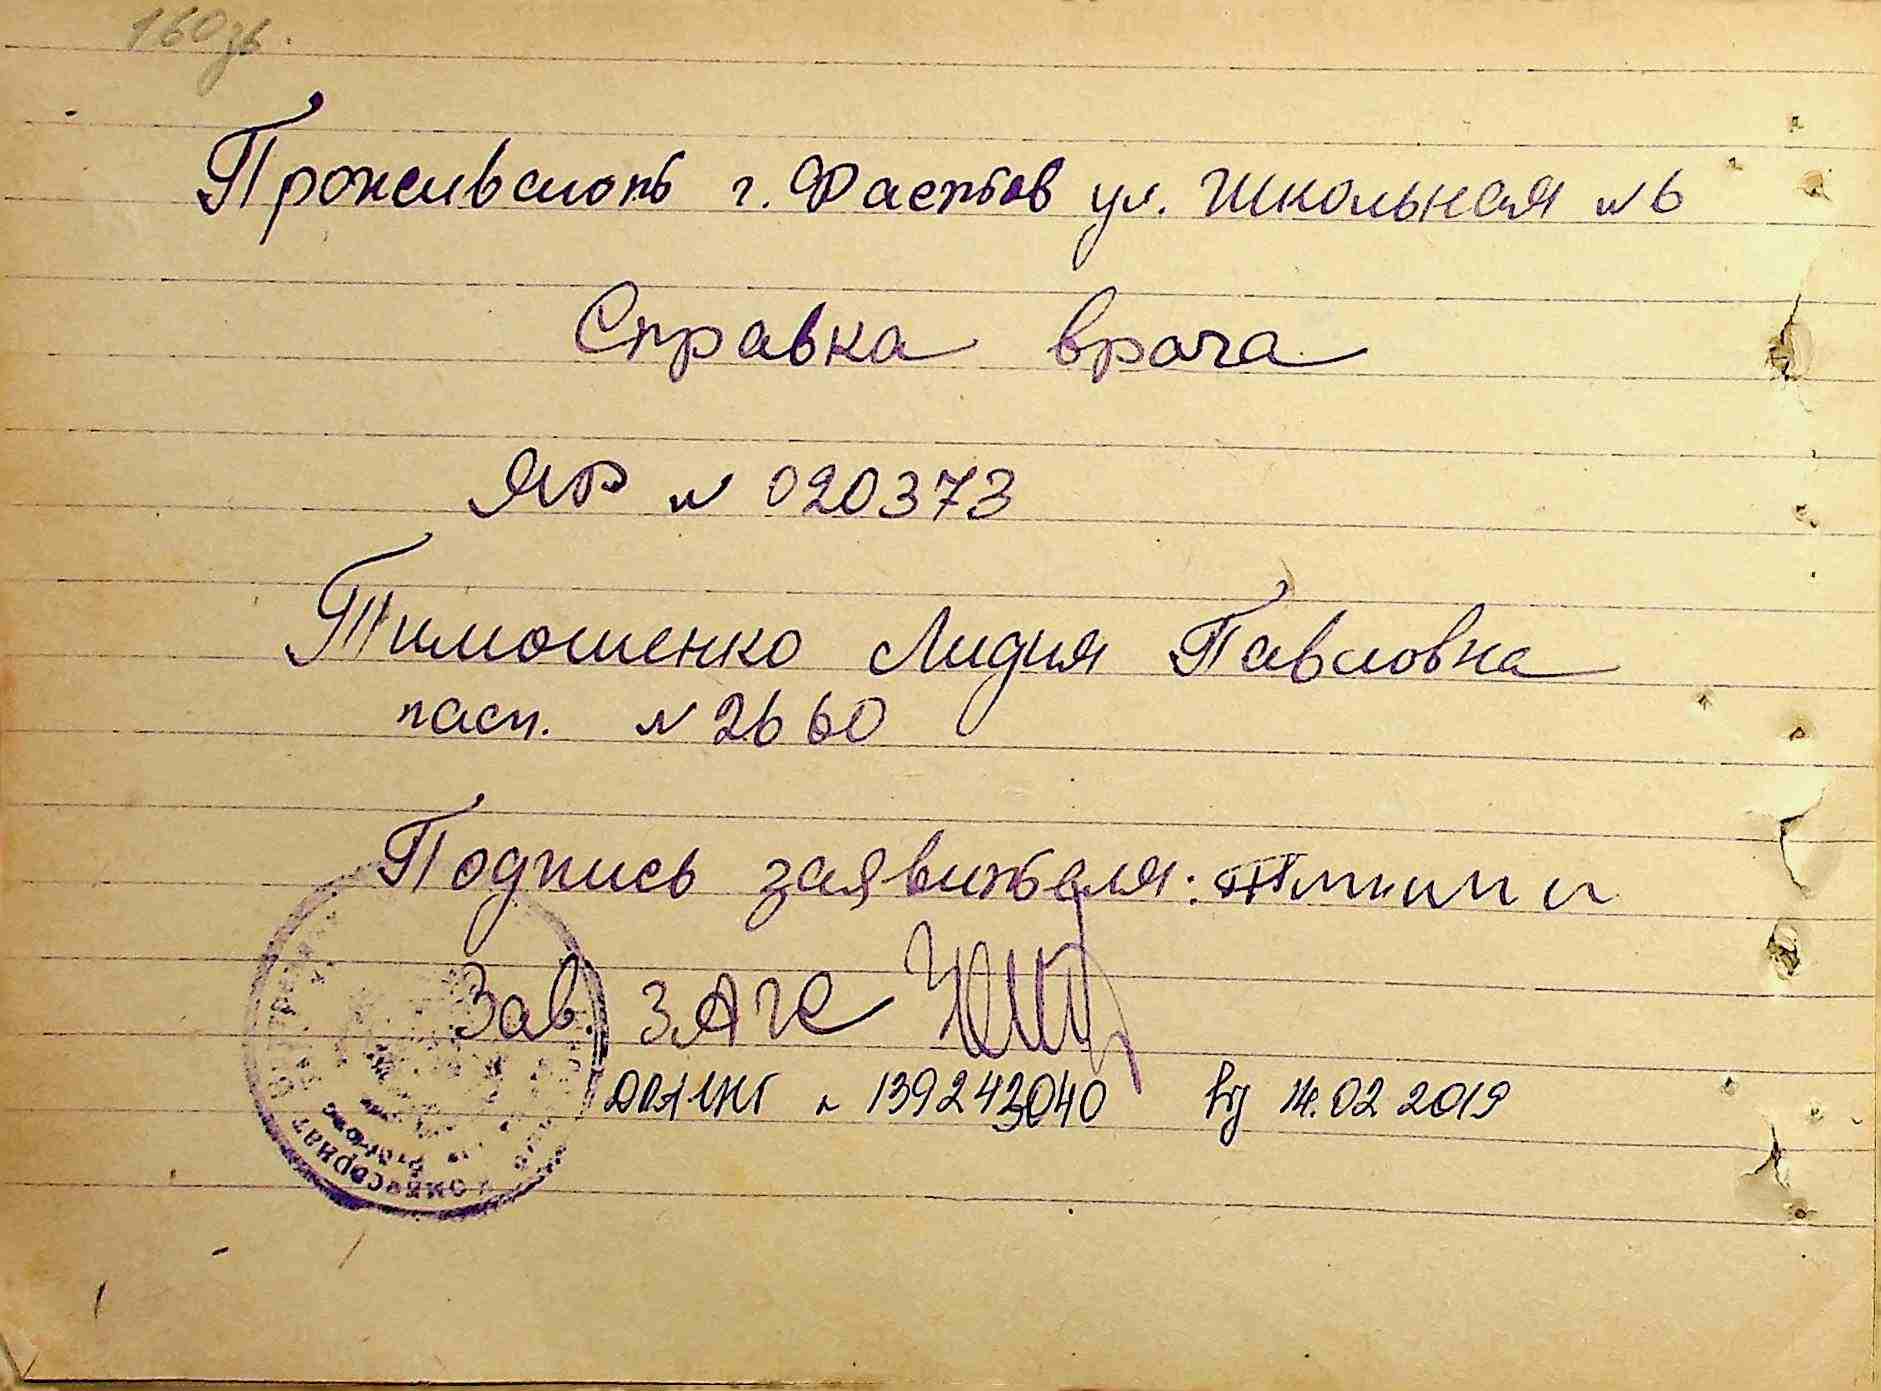 160зв.
Проживают г. Фастов ул. Школьная №6
Справка врача
ЯР № 020373
Тимошенко Лидия Павловна
пасп. № 2660
Подпись заявителя:
Зав. ЗАГС
№ 139243040 14.02 2019
комиссариат